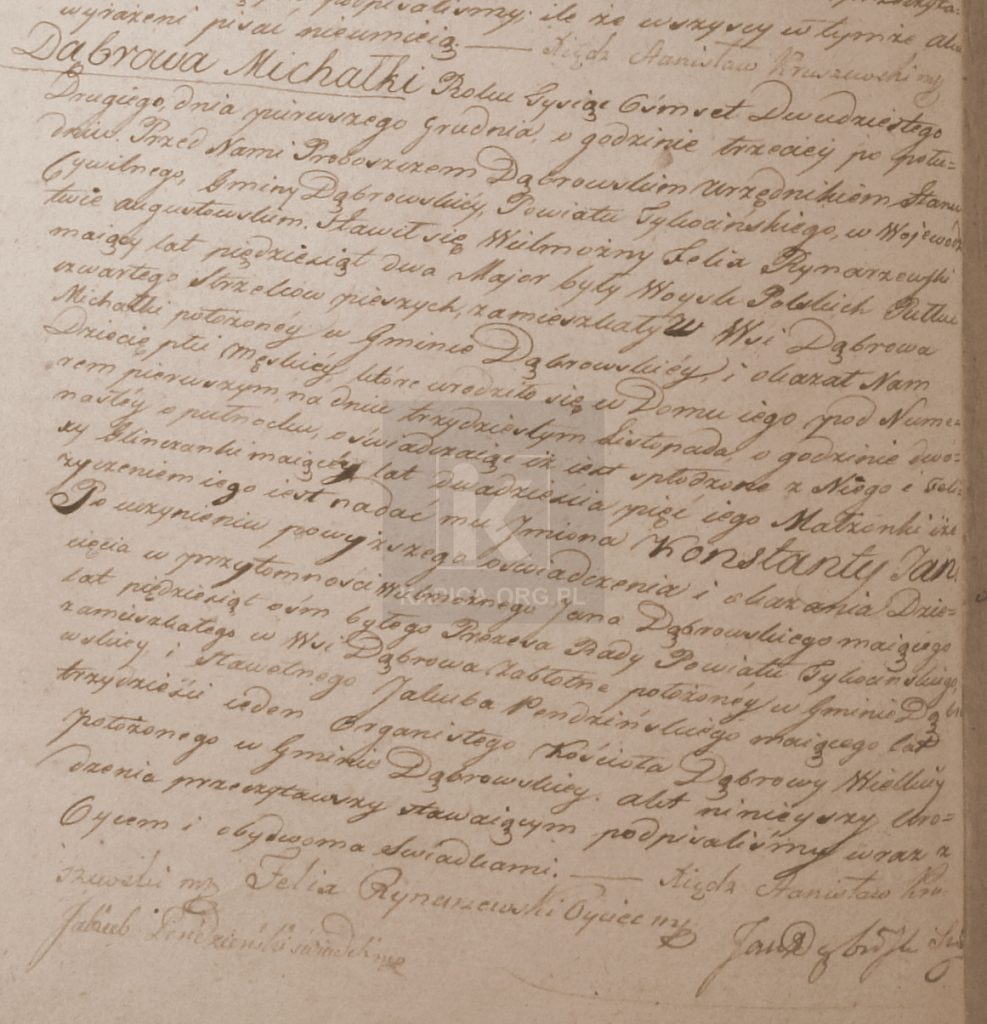 podpisaliśmy; ile że wszyscy w tymże
wyrażeni pisać nieumieią. — Xiądz Stanisław Kruszewski mp
Dąbrowa Michałki Roku Tysiąc Ośmset Dwudziestego
Drugiego, dnia pierwszego Grudnia, o godzinie trzeciey po połu-
dniu. Przed Nami Proboszczem Dąbrowskim Urzędnikiem Stanu
Cywilnego, Gminy Dąbrowskiey, Powiatu Tykocińskiego, w Wojewódz
twie augustowskim. Stawił się Wielmożny Felix Rynarzewski
maiący lat pięćdziesiąt dwa Major były Woysk Polskich Pułku
czwartego Strzelców pieszych, zamieszkały w Wsi Dąbrowa
Michałki położoney w Gminie Dąbrowskiéy, i okazał Nam
Dziecię płci męskiéy, które urodziło się w Domu iego pod Nume-
rem pierwszym, na dniu trzydziestym Listopada, o godzinie dwó-
nastey o północku, oświadczaiąc iż iest spłodzone z Niego i Feli-
xy Glinczanki maiącéy lat dwadzieścia pięć iego Małżonki iże
życzeniem iego iest nadać mu Jmiona Konstanty Jan.
Po uczynieniu powyższego oświadczenia i okazania Dzie-
cięcia w przytomności Wielmożnego Jana Dąbrowskiego maiącego
lat pięćdziesiąt ośm byłego Prezesa Rady Powiatu Tykocińskiego
zamieszkałego w Wsi Dąbrowa Zabłotne położonéy w Gminie Dąbro
wskiey i Sławetnego Jakuba Pendzińskiego maiącego lat
trzydzieści ieden Organistego Kościoła Dąbrowy Wielkiéy
położonego w Gminie Dąbrowskiey. akt ninieyszy Uro-
dzenia przeczytawszy stawaiącym podpisaliśmy wraz z
Oycem i obydwoma Swiadkami. — Xiądz Stanisław Kru
szewski mp Felix Rynarzewski Oyciec mp
Jakub Pendzieński świadek mp Jan Dąbrowski
K
KAPICA.ORG.PL